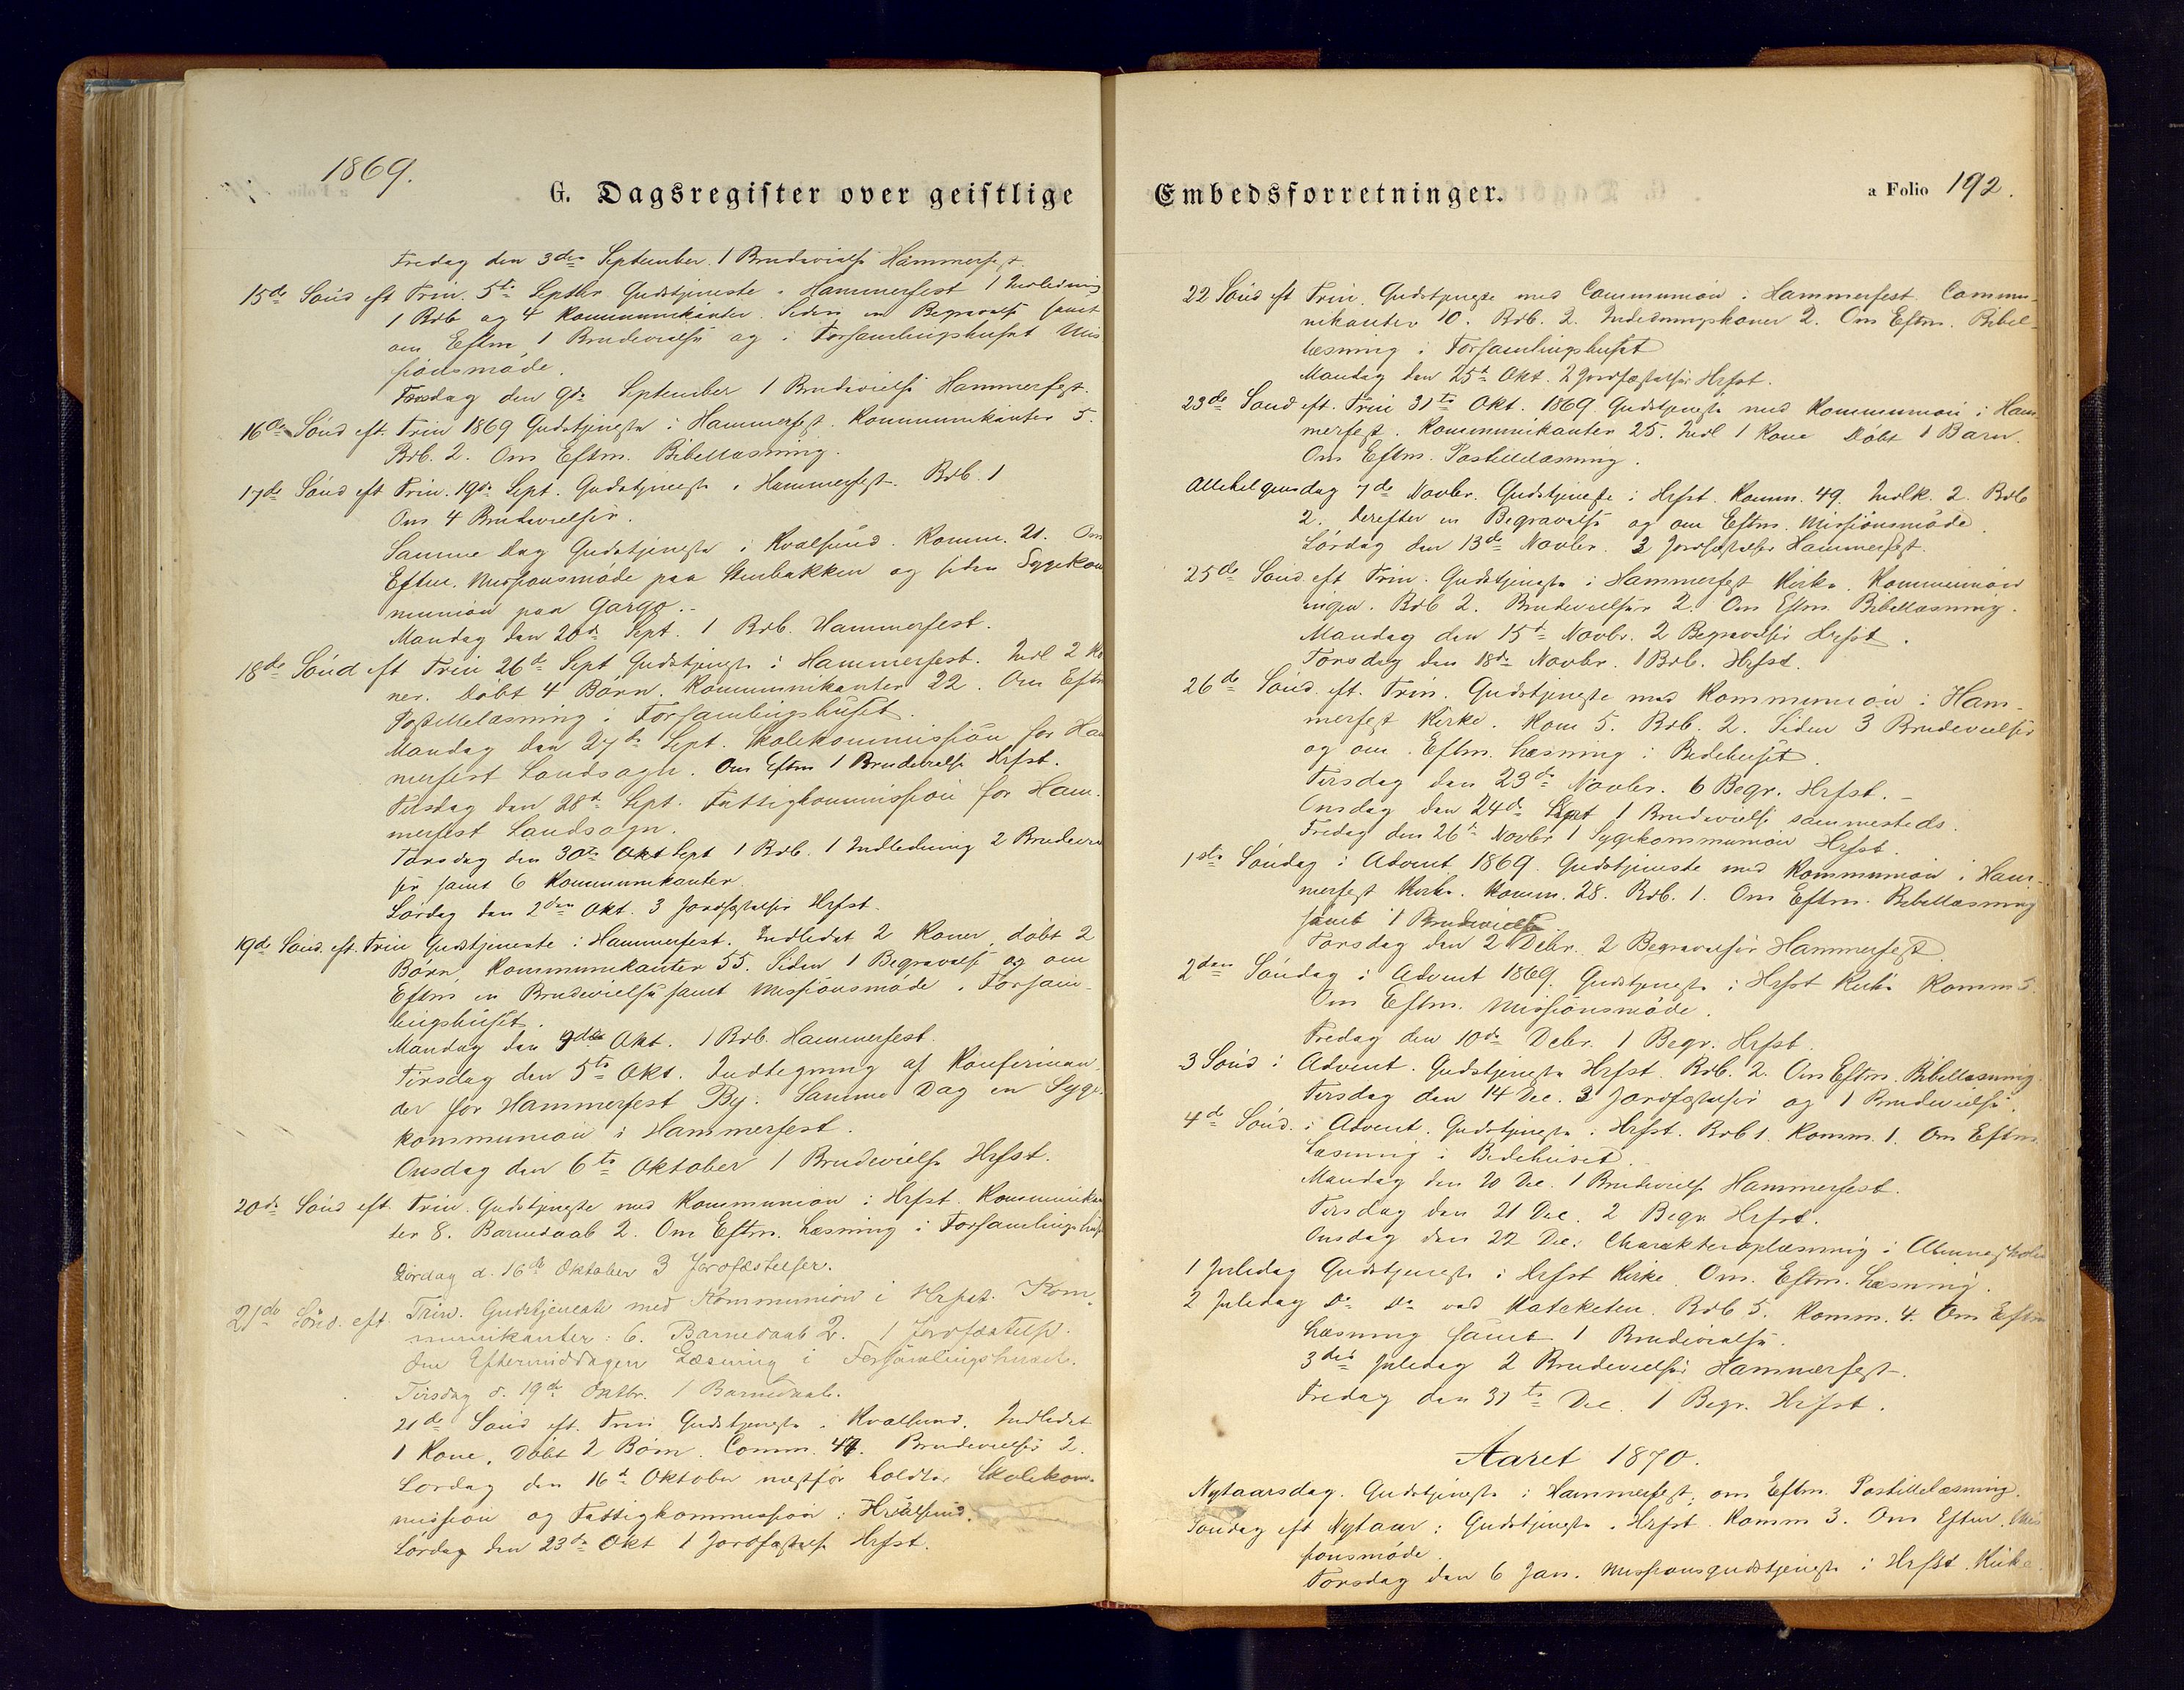 1869.
G. Dagsregister over geistlige
Fredag den 3die September. 1 Brudevielse Hammerfest
15de Sönd eft Trin. 5te Septbr. Gudstjeneste i Hammerfest 1 Indledning
1 Brdb og 4 Kommunikanter. Siden en Begravelse samt
om Eftm. 1 Brudevielse og i Forsamlingshuset Mis
sionsmöde.
Torsdag den 9de September 1 Brudevielse Hammerfest.
16de Sönd eft. Trin 1869 Gudstjeneste i Hammerfest. Kommunikanter 5.
Brb. 2. Om Eftm. Bibellæsning.
17de Sönd eft Trin. 19de Sept. Gudstjeneste i Hammerfest. Brb. 1
Om 4 Brudevielser.
Samme Dag Gudstjeneste i Kvalsund. Komm. 21. Om
Eftm. Missionsmöde paa Stenbakken og siden Sygekom
munion paa Gargo.-
Mandag den 20de Sept. 1 Brb. Hammerfest.
18de Sönd eft Trin 26de Sept Gudstjeneste i Hammerfest. Indl 2 Ko
ner. Döbt 4 Börn. Kommunikanter 22. Om Eftm
Postillelæsning i Forsamlingshuset.
Mandag den 27de Sept. Skolekommission for Ham
merfest Landsogn. Om Eftm 1 Brudevielse Hrfst.
Tirsdag den 28de Sept. Fattigkommission for Ham-
merfest Landsogn.
Torsdag den 30te Okt Sept 1 Brb. 1 Indledning 2 Brudeviel
ser samt 6 Kommunikanter
Lördag den 2den Okt. 3 Jordfæstelser Hrfst.
19de Sönd. eft. Trin Gudstjeneste i Hammerfest. Indledet 2 Koner, döbt 2
Börn, Kommunikanter 55. Siden 1 Begravelse og om
Eftm en Brudevielse samt Missionsmöde i Forsam-
lingshuset.
Mandag den Okt. 1 Brb. Hammerfest.
Tirsdag den 5te Okt. Indtegning af Konfirman-
der for Hammerfest By. Samme Dag en Syge-
kommunion i Hammerfest.
Onsdag den 6te Oktober 1 Brudevielse Hrfst.
20de Sönd eft. Trin. Gudstjeneste med Kommunion i Hrfst. Kommunikan
ter 8. Barnedaab 2. Om Eftm. Læsning i Forsamlingshus
Lördag d. 16de Oktober 3 Jordfæstelser.
21de Sönd. eft. Trin. Gudstjeneste med Kommunion i Hrfst. Kom-
munikanter: 6. Barnedaab 2. 1 Jordfæstelse.
Om Eftermiddagen Læsning i Forsamlingshuset.
Tirsdag d. 19de Oktbr. 1 Barnedaab.
21de Sönd eft. Trin Gudstjeneste i Kvalsund. Indledet
1 Kone. Döbt 2 Börn. Comm. 47. Brudevielser 2.
Lördag den 16de Oktober næstför holdtes Skolekom-
mission og Fattigkommission i Kvalsund.
Lördag den 23de Okt 1 Jordfæstelse Hrfst.
Embedsforretninger.
a Folio 192.
22 Sönd eft Trin. Gudstjeneste med Communion i Hammerfest. Commu-
nikanter 10. Brb. 2. Indledningskoner 2. Om Eftm. Bibel-
læsning i Forsamlingshuset
Mandag den 25de Okt. 2 Jordfæstelser Hrfst.
23de Sönd eft. Trin 31te Okt. 1869. Gudstjeneste med Kommunion i Ham
merfest. Kommunikanter 25. Indl 1 Kone Döbt 1 Barn.
Om Eftm. Postillelæsning.
Allehelgensdag 7de Novbr. Gudstjeneste i Hrfst. Komm. 49. Indlk. 2. Brb
2. Derefter en Begravelse og om Eftm. Missionsmöde.
Lördag den 13de Novbr. 2 Jordfæstelser Hammerfest.
25de Sönd eft Trin. Gudstjeneste i Hammerfest Kirke. Kommunion
ingen. Brb 2. Brudevielser 2. Om Eftm. Bibellæsning.
Mandag den 15de Novbr. 2 Begravelser Hrfst.
Torsdag den 18de Novbr. 1 Brb. Hrfst.
26de Sönd. eft. Trin. Gudstjeneste med Kommunion i Ham-
merfest Kirke. Kom 5. Brb. 2. Siden 3 Brudevielser
og om Eftm. Læsning i Bedehuset.
Tirsdag den 23de Novbr. 6 Begr. Hrfst.-
Onsdag den 24de Sept 1 Brudevielse sammesteds.
Fredag den 26de Novbr 1 Sygekommunion Hrfst.
1ste Söndag i Advent 1869. Gudstjeneste med Kommunion i Ham-
merfest Kirke. Komm. 28. Brb. 1. Om Eftm. Bibellæsning
samt 1 Brudevielse
Torsdag den 2 Debr. 2 Begravelser Hammerfest.
2den Söndag i Advent 1869. Gudstjeneste i Hrfst Kirke Komm 5.
Om Eftm. Missionsmöde.
Fredag den 10de Debr. 1 Begr. Hrfst.
3 Sönd i Advent. Gudstjeneste Hrfst. Brb. 2. Om Eftm. Bibellæsning.
Tirsdag den 14 Dec. 3 Jordfæstelser og 1 Brudevielse.
4de Sönd. i Advent. Gudstjeneste i Hrfst. Brb 1. Komm. 1. Om Eftm.
Læsning i Bedehuset.
Mandag den 20 Dec. 1 Brudevielse Hammerfest.
Tirsdag den 21 Dec. 2 Begr. Hrfst.
Onsdag den 22 Dec. Charakteroplæsning i Almueskolen
1 Juledag Gudstjeneste i Hrfst Kirke. Om. Eftm. Læsning.
2 Juledag Do Do ved Kateketen. Brb 5. Komm. 4. Om Eftm
Læsning samt 1 Brudevielse.
3die Juledag 2 Brudevielser Hammerfest.
Fredag den 31te Dec. 1 Begr. Hrfst.
Aaret 1870.
Nytaarsdag. Gudstjeneste i Hammerfest, om Eftm. Postillelæsning.
Söndag eft Nytaar: Gudstjeneste i Hrfst. Komm 3. Om Eftm. Mis
sionsmöde.
Torsdag den 6 Jan. Missionsgudstjeneste i Hrfst. Kirke